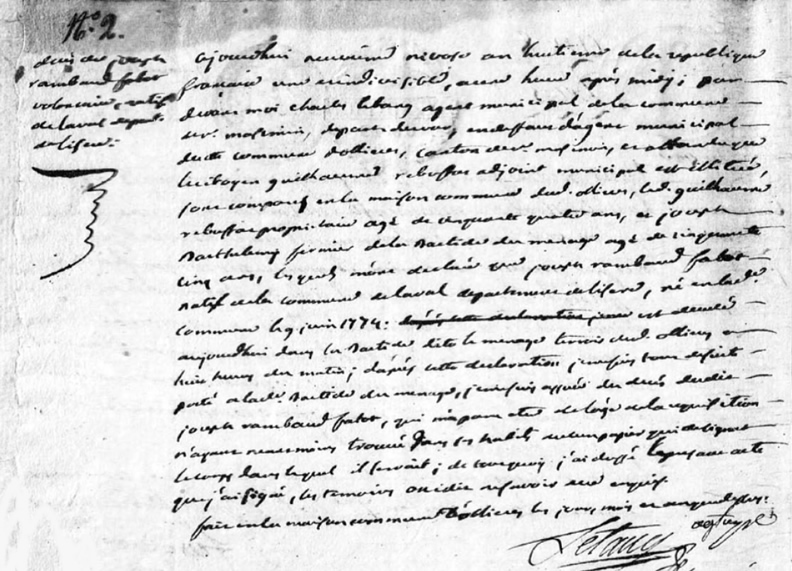 N.º 2.
décès de joseph
rambaud fabot
volontaire, natif
de laval départ.
de lisere.
ajourdhui neuvieme nivose an huitieme de la republique
francaise une et indivisible, a une heure après midy; pard
devant moi charles agent municipal de la commune
de st. maximin, departt du var, en deffaut d'agent municipal
de cette commune dollieres, canton de st. maximin, et attendu que
le citoyen guilhaume rebuffat adjoint municipal est illitéré,
sont comparus en la maison commune dud. ollieres, led. guilhaume
rebuffat proprietaire agé de cinquante quatre ans, et joseph
Barthelemy fermier de la Bastide du menage agé de cinquante
cinq ans, lesquels m'ont declaré que joseph rambaud fabot
natif de la commune de laval departement de lisere, né en lad.
commune le 9 juin 1774: est decedé
aujourdhui dans la Bastide dite le menage terroir dud. ollieres a
huit heures du matin; d'après cette declaration, je me suis tout de suite
porté a lad. Bastide du menage, je me suis assuré du decès dudit
joseph rambaud fabot, qui m'a paru etre de l'age de la requisition
n'ayant neanmoins trouvé dans ses habits aucun papier qui designat
le corps dans lequel il servait; de tout quoi j'ai dressé le present acte
que j'ai signé, les temoins ont dit ne savoir de ce enquis.
fait en la maison commune d'ollieres les jour, mois et an que dessus: